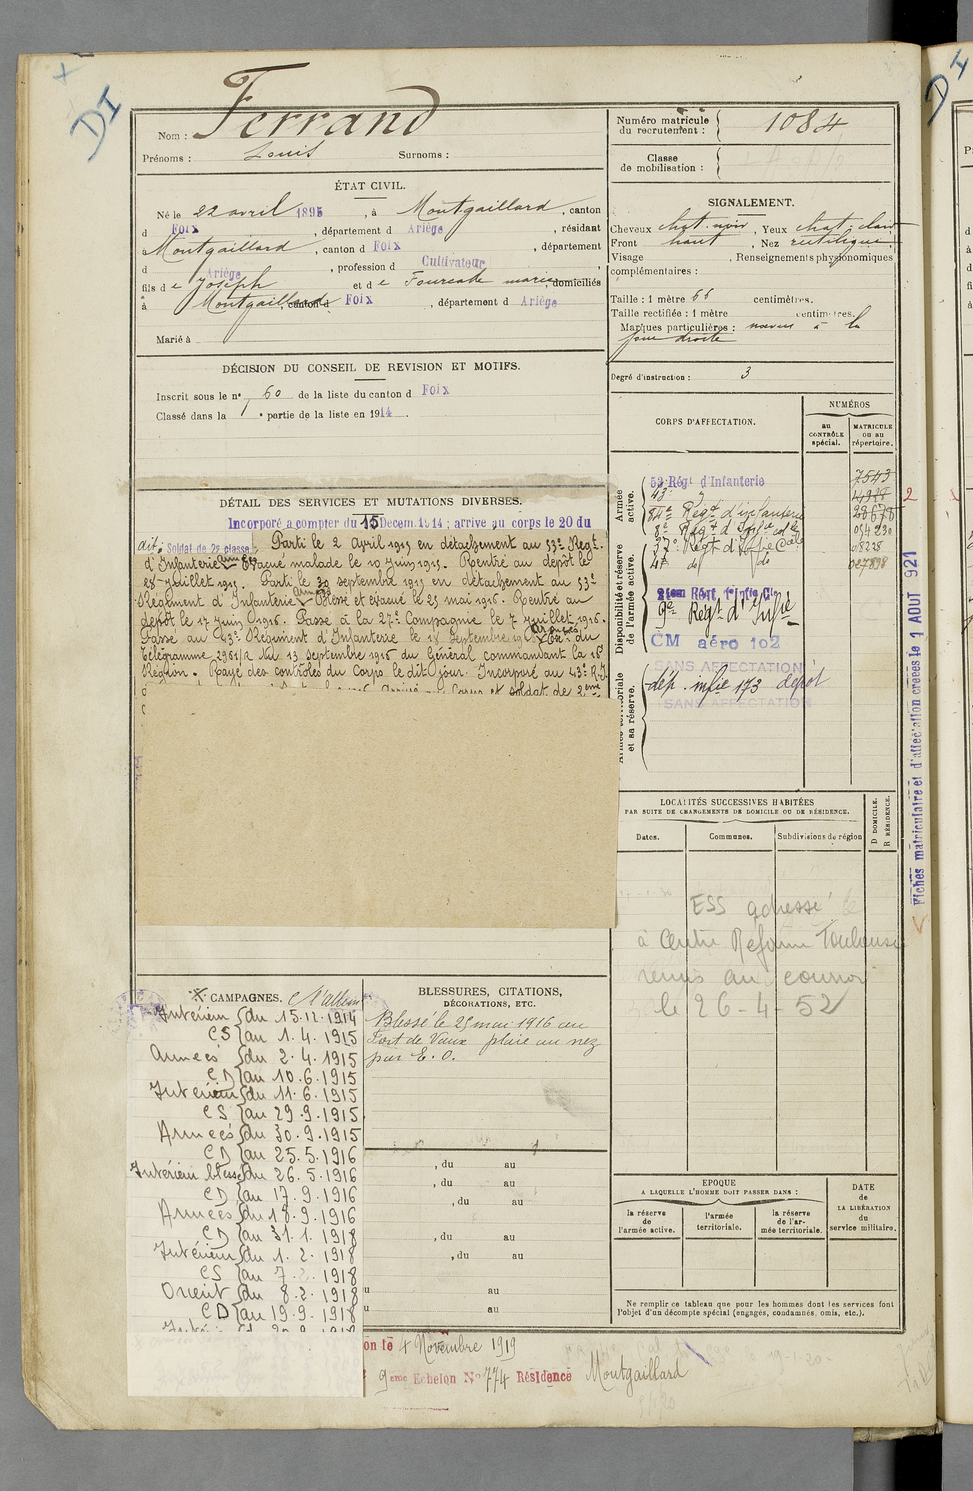 DI
Nom : Ferrand
Prénoms : Louis Surnoms :
ÉTAT CIVIL.
Né le 22 avril 1895, à Montgaillard, canton
d Foix, département d Ariège, résidant
à Montgaillard, canton d Foix, département
d Ariège, profession d Cultivateur,
fils de Joseph et de Fourcade marie, domiciliés
à Montgaillard, canton d Foix, département d Ariège
Marié à
DÉCISION DU CONSEIL DE REVISION ET MOTIFS.
Inscrit sous le n° 60 de la liste du canton d Foix
Classé dans la 1 e partie de la liste en 1914.
DÉTAIL DES SERVICES ET MUTATIONS DIVERSES.
Incorporé a compter du 15 Decem. 1914 ; arrive au corps le 20 du
dit ; Soldat de 2e classe. Parti le 2 Avril 1915 en détachement au 53e Regt.
d'Infanterie Evacué malade le 10 Juin 1915. Rentré au dépôt le
28 Juillet 1915. Parti le 30 septembre 1915 en détachement au 53e
Régiment d'Infanterie Blessé et évacué le 25 mai 1916. Rentré au
dépôt le 17 Juin 1916. Passé à la 27e Compagnie le 7 Juillet 1916.
Passé au 43e Régiment d'Infanterie le 18 Septembre 1916 du
Télégramme 2961/R Nu 13 septembre 1916 du Général commandant la 16e
Région. Rayé des contrôles du Corps le dit jour. Incorporé au 43e R.I.
Corps et soldat de 2eme
CAMPAGNES.
Intérieur du 15.12.1914
CS au 1.4.1915
Armées du 2.4.1915
CD au 10.6.1915
Intérieur du 11.6.1915
CS au 29.9.1915
Armées du 30.9.1915
CD au 25.5.1916
Intérieur blessé du 26.5.1916
CD au 17.9.1916
Armées du 18.9.1916
CD au 31.1.1918
Intérieur du 1.2.1918
CS au 7.2.1918
Orient du 8.2.1918
CD au 19.9.1918
BLESSURES, CITATIONS,
DÉCORATIONS, ETC.
Blessé le 25 mai 1916 au
Fort de Vaux plaie au nez
par E. O.
, du au
, du au
, du au
, du au
, du au
au
au
on le 4 Novembre 1919
9eme Echelon N° 774 Résidence Montgaillard
Numéro matricule
du recrutement : 1084
Classe
de mobilisation :
SIGNALEMENT.
Cheveux chat. noir, Yeux chat. clair
Front haut, Nez rectiligne
Visage , Renseignements physionomiques
complémentaires :
Taille : 1 mètre 66 centimètres.
Taille rectifiée : 1 mètre centimètres.
Marques particulières : naevus à la
joue droite
Degré d'instruction : 3
CORPS D'AFFECTATION.
NUMÉROS
au
CONTRÔLE
spécial.
MATRICULE
OU AU
répertoire.
Armée
active.
53 Régt d'Infanterie 7543
43
84e Régt d'infanterie 28678
8e Régt d'Infie cole 054230
37e Regt d'Infie Cole 08228
4e do do 027898
Disponibilité et réserve
de l'armée active.
9e Regt d'Infie
CM aéro 102
SANS AFFECTATION
et sa réserve.
dép. infie 173 dépôt
SANS AFFECTATION
LOCALITÉS SUCCESSIVES HABITÉES
PAR SUITE DE CHANGEMENTS DE DOMICILE OU DE RÉSIDENCE.
D DOMICILE.
R RÉSIDENCE.
Dates.
Communes.
Subdivisions de région
ESS adressé le
à Centre Réforme Toulouse
remis au courrier
le 26-4-52
EPOQUE
A LAQUELLE L'HOMME DOIT PASSER DANS :
la réserve
de
l'armée active.
l'armée
territoriale.
la réserve
de l'ar-
mée territoriale.
DATE
de
LA LIBÉRATION
du
service militaire.
Ne remplir ce tableau que pour les hommes dont les services font
l'objet d'un décompte spécial (engagés, condamnés, omis, etc.).
Fiches matriculaire et d'affectation créées le 1 AOUT 921
2